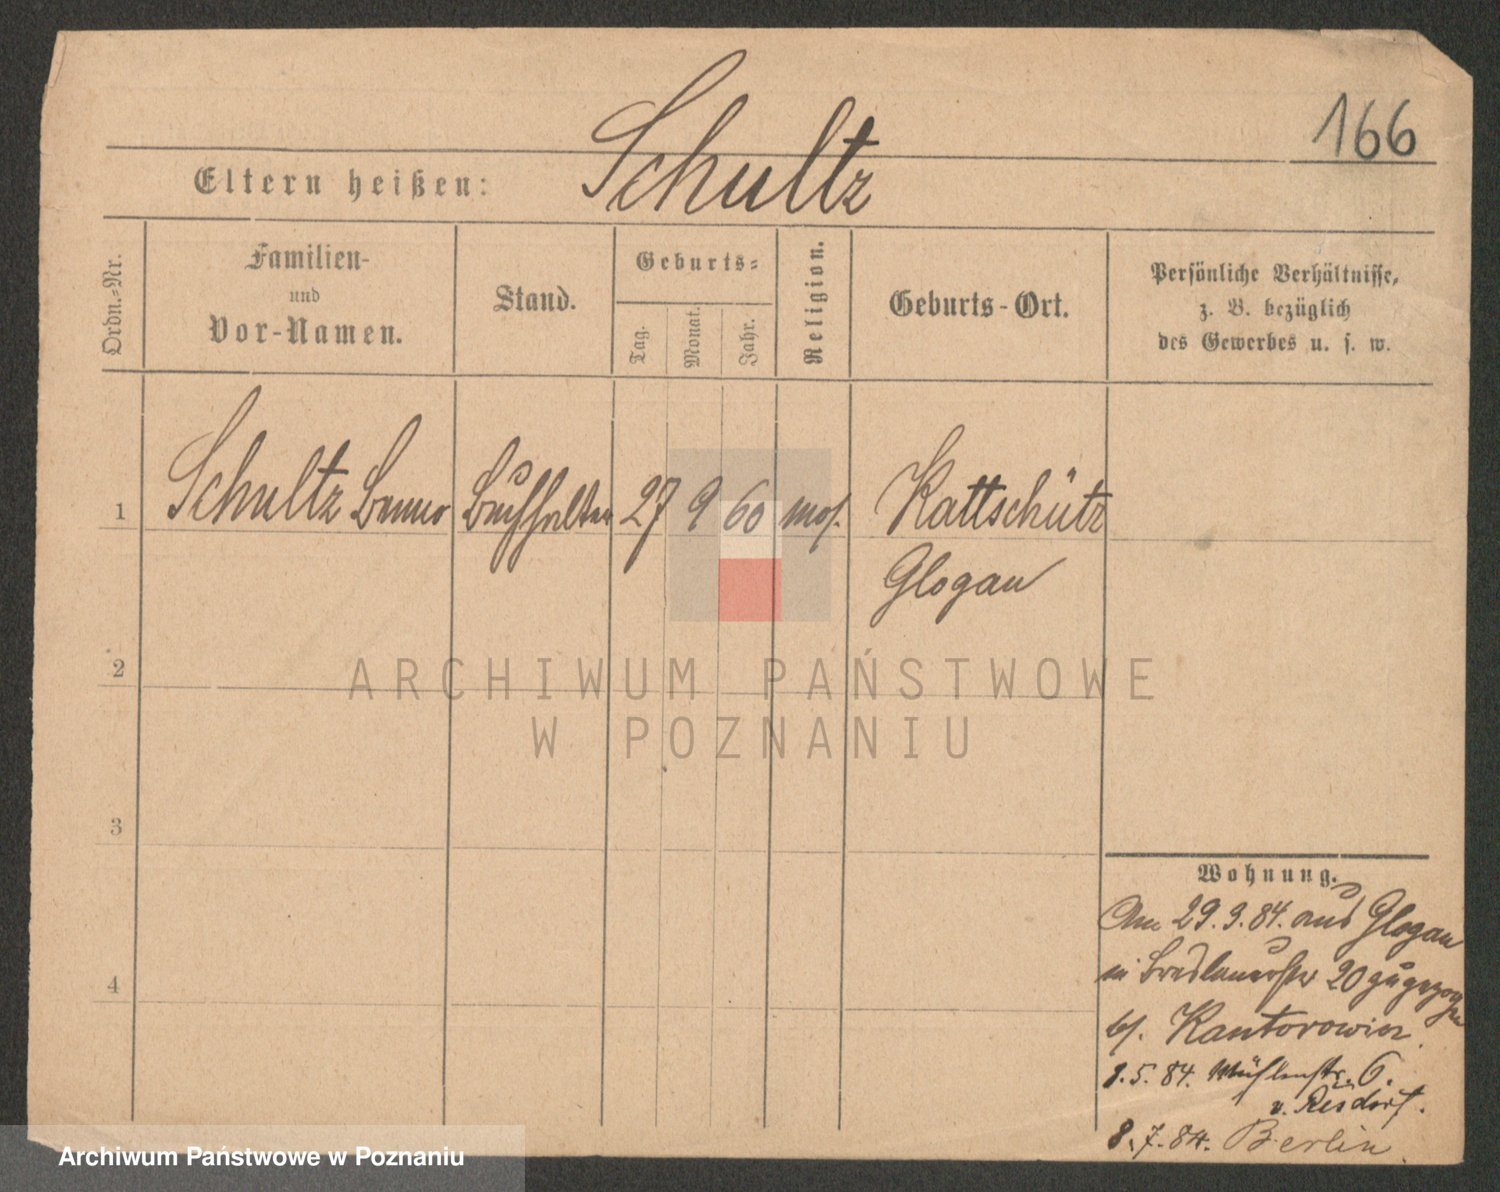 166
Schultz
Eltern heißen:
Ordn.-Nr.
Familien-
und
Vor-Namen.
Stand.
Geburts-
Tag.
Monat.
Jahr.
Religion.
Geburts-Ort.
Persönliche Verhältnisse,
z. B. bezüglich
des Gewerbes u. s. w.
1 Schultz Benno Buchhalter 27 9 60 mos. Kattschütz
Glogau
2
3
4
ARCHIWUM PAŃSTWOWE
W POZNANIU
Wohnung.
Am 29.3.84. aus Glogau
in Breslauerstr 20 zugezogen
bei Kantorowicz.
1.5.84. Mühlenstr. 6.
8.7.84. Berlin.
Archiwum Państwowe w Poznaniu